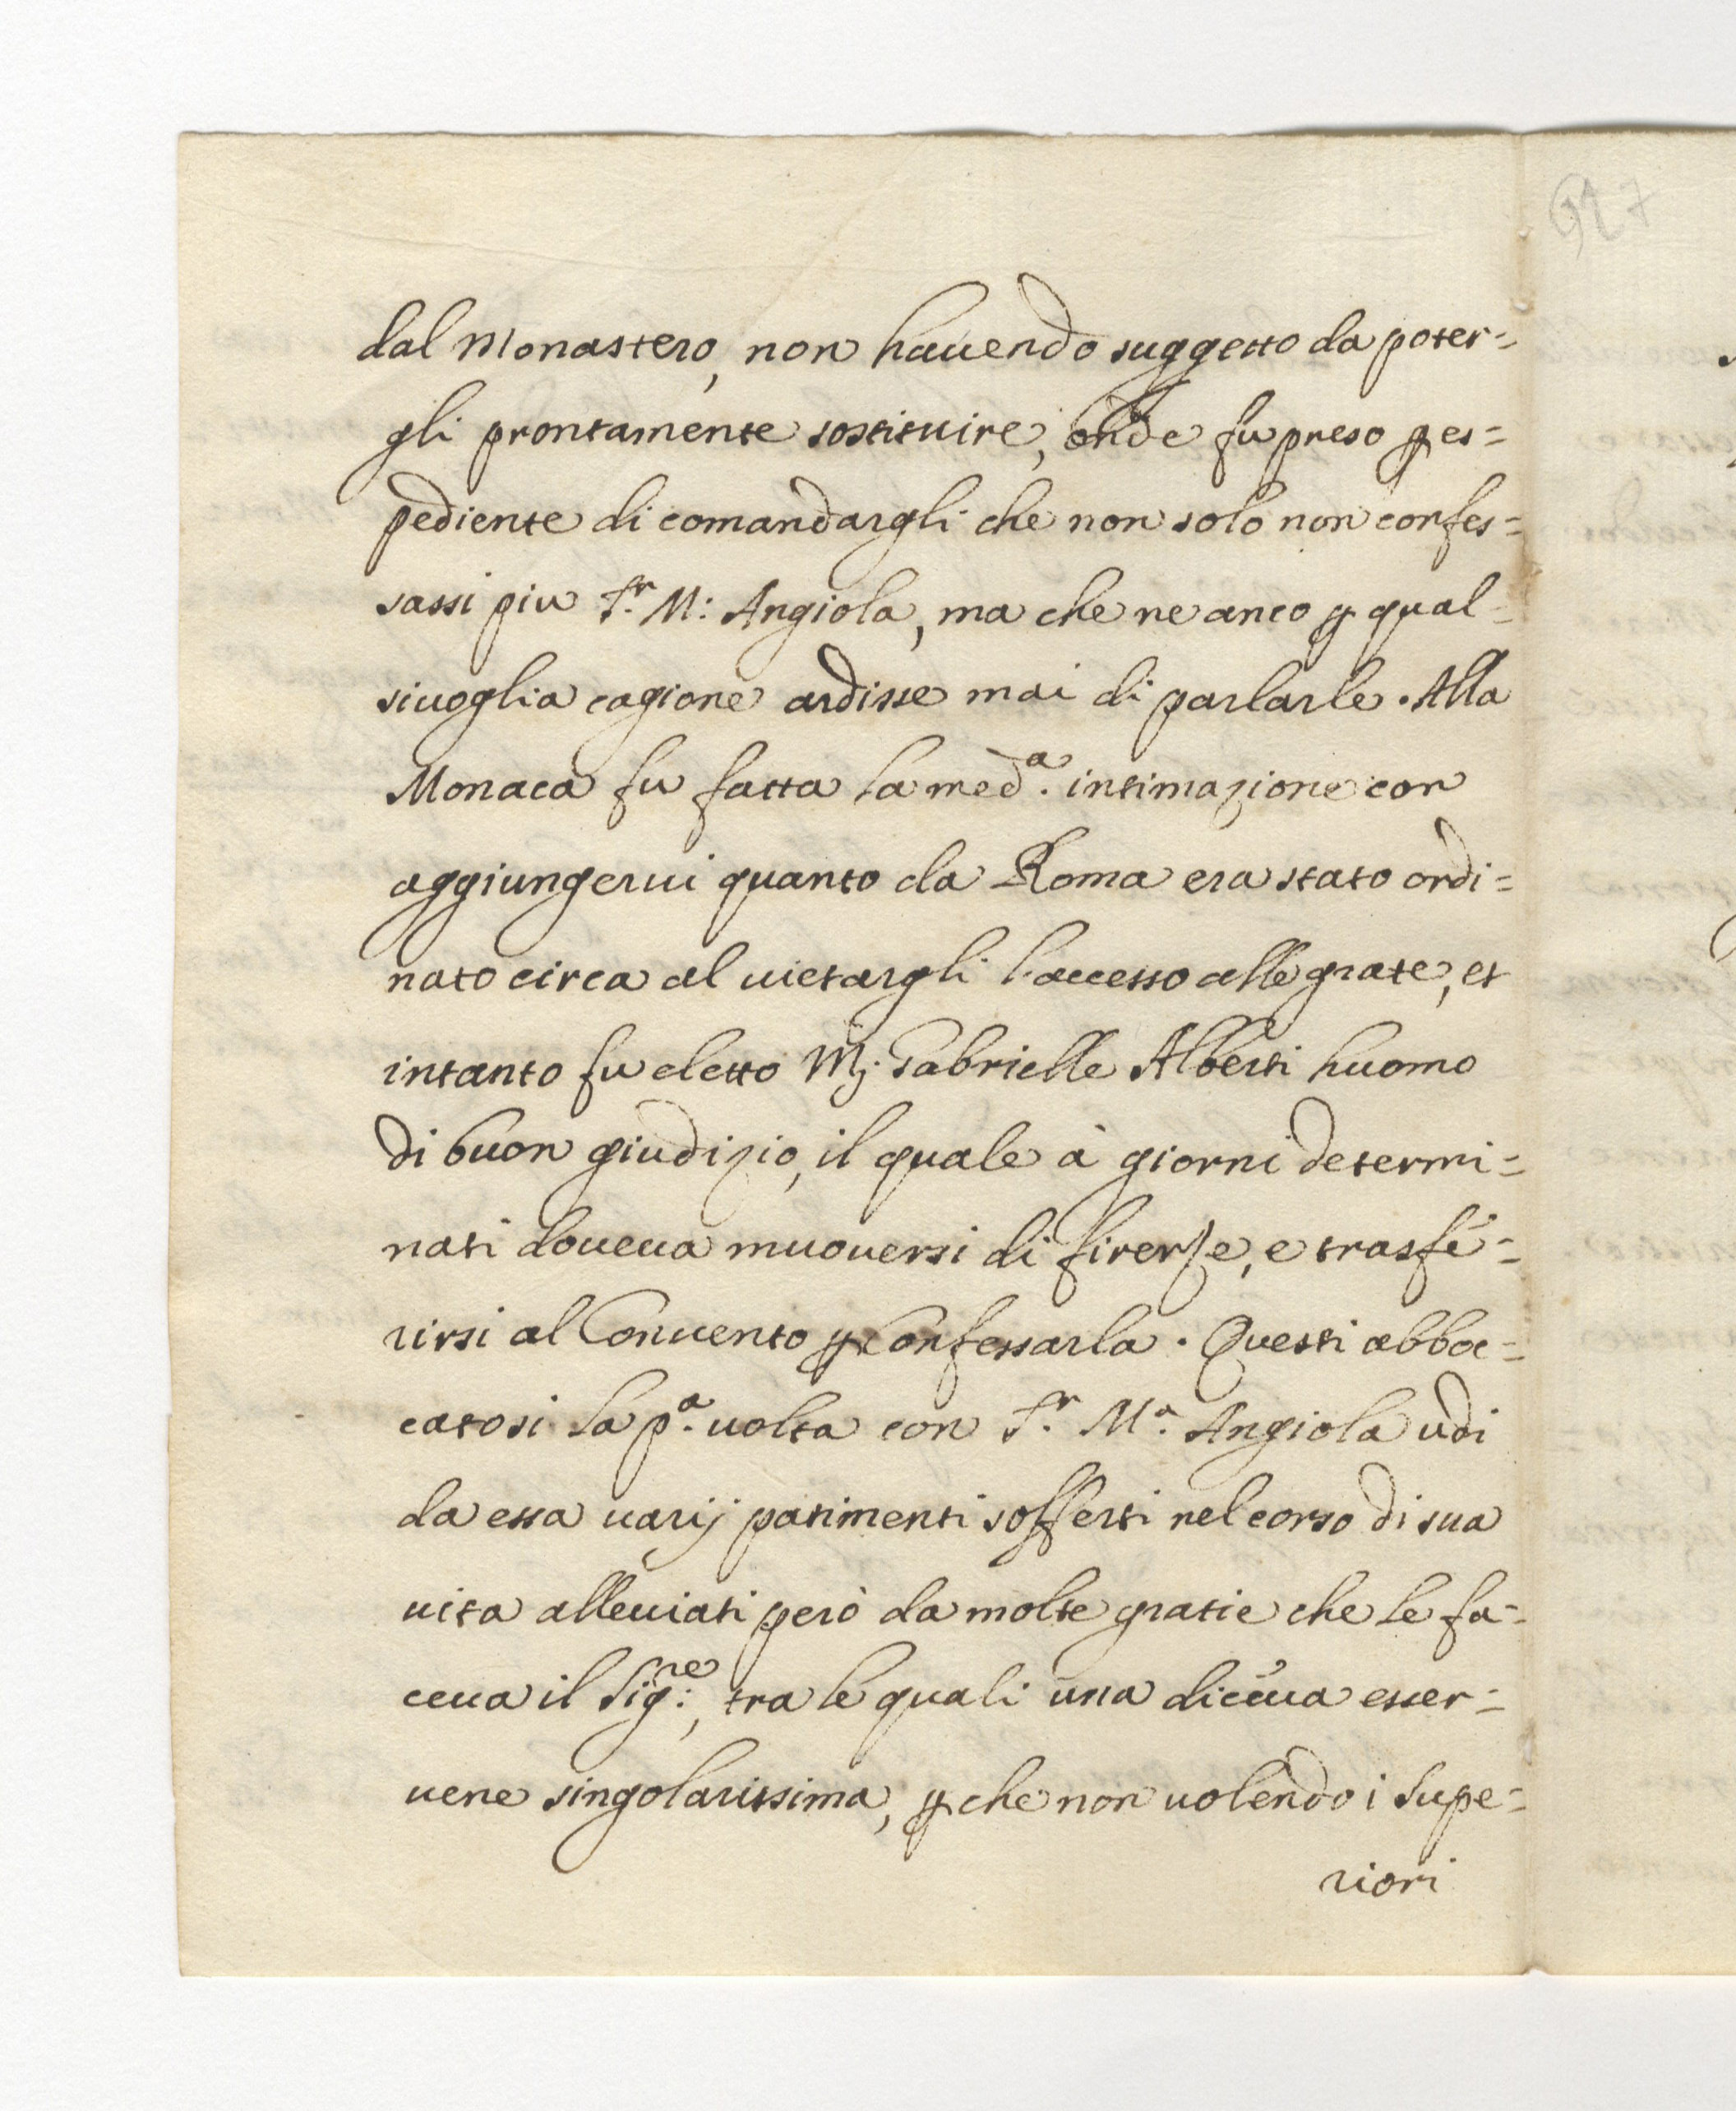 dal Monastero, non hauendo suggetto da poter=
gli prontamente sostituire, onde fu preso ꝑ es=
pediente di comandargli che non solo non confes=
sassi piu Sr. M: Angiola, ma che ne anco ꝑ qual=
siuoglia cagione ardisse mai di parlarle. Alla
Monaca fu fatta la med.a intimazione con
aggiungerui quanto da Roma era stato ordi=
nato circa al uietargli l'accesso alle grate, et
intanto fu eletto Mj. Gabrielle Alberti huomo
di buon giudizio, il quale à giorni determi=
nati doueua muouersi di firenze, e trasfe=
rirsi al Conuento ꝑ Confessarla. Questi abboc=
catosi la p.a uolta con Sr. Ma. Angiola udi
da essa uarij patimenti sofferti nel corso di sua
uita alleuiati però da molte gratie che le fa=
ceua il Sig:re, tra le quali una diceua esser=
uene singolarissima, ꝑ che non uolendo i Supe=
riori